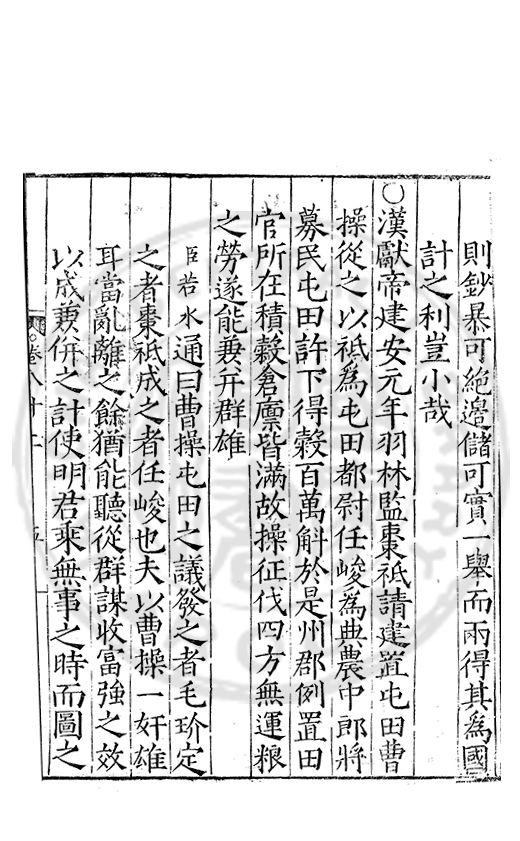 則鈔暴可絶邊儲可實一舉而兩得其為國
計之利豈小哉
○漢獻帝建安元年羽林監棗祗請建置屯田曹
操從之以祗為屯田都尉任峻為典農中郎將
募民屯田許下得穀百萬斛於是州郡例置田
官所在積穀倉廪皆滿故操征伐四方無運粮
之勞遂能兼并群雄
臣若水通曰曹操屯田之議發之者毛玠定
之者棗祗成之者任峻也夫以曹操一奸雄
耳當亂離之餘猶能聽從群謀收富強之效
以成兼併之計使明君乘無事之時而圖之
卷八十二
五